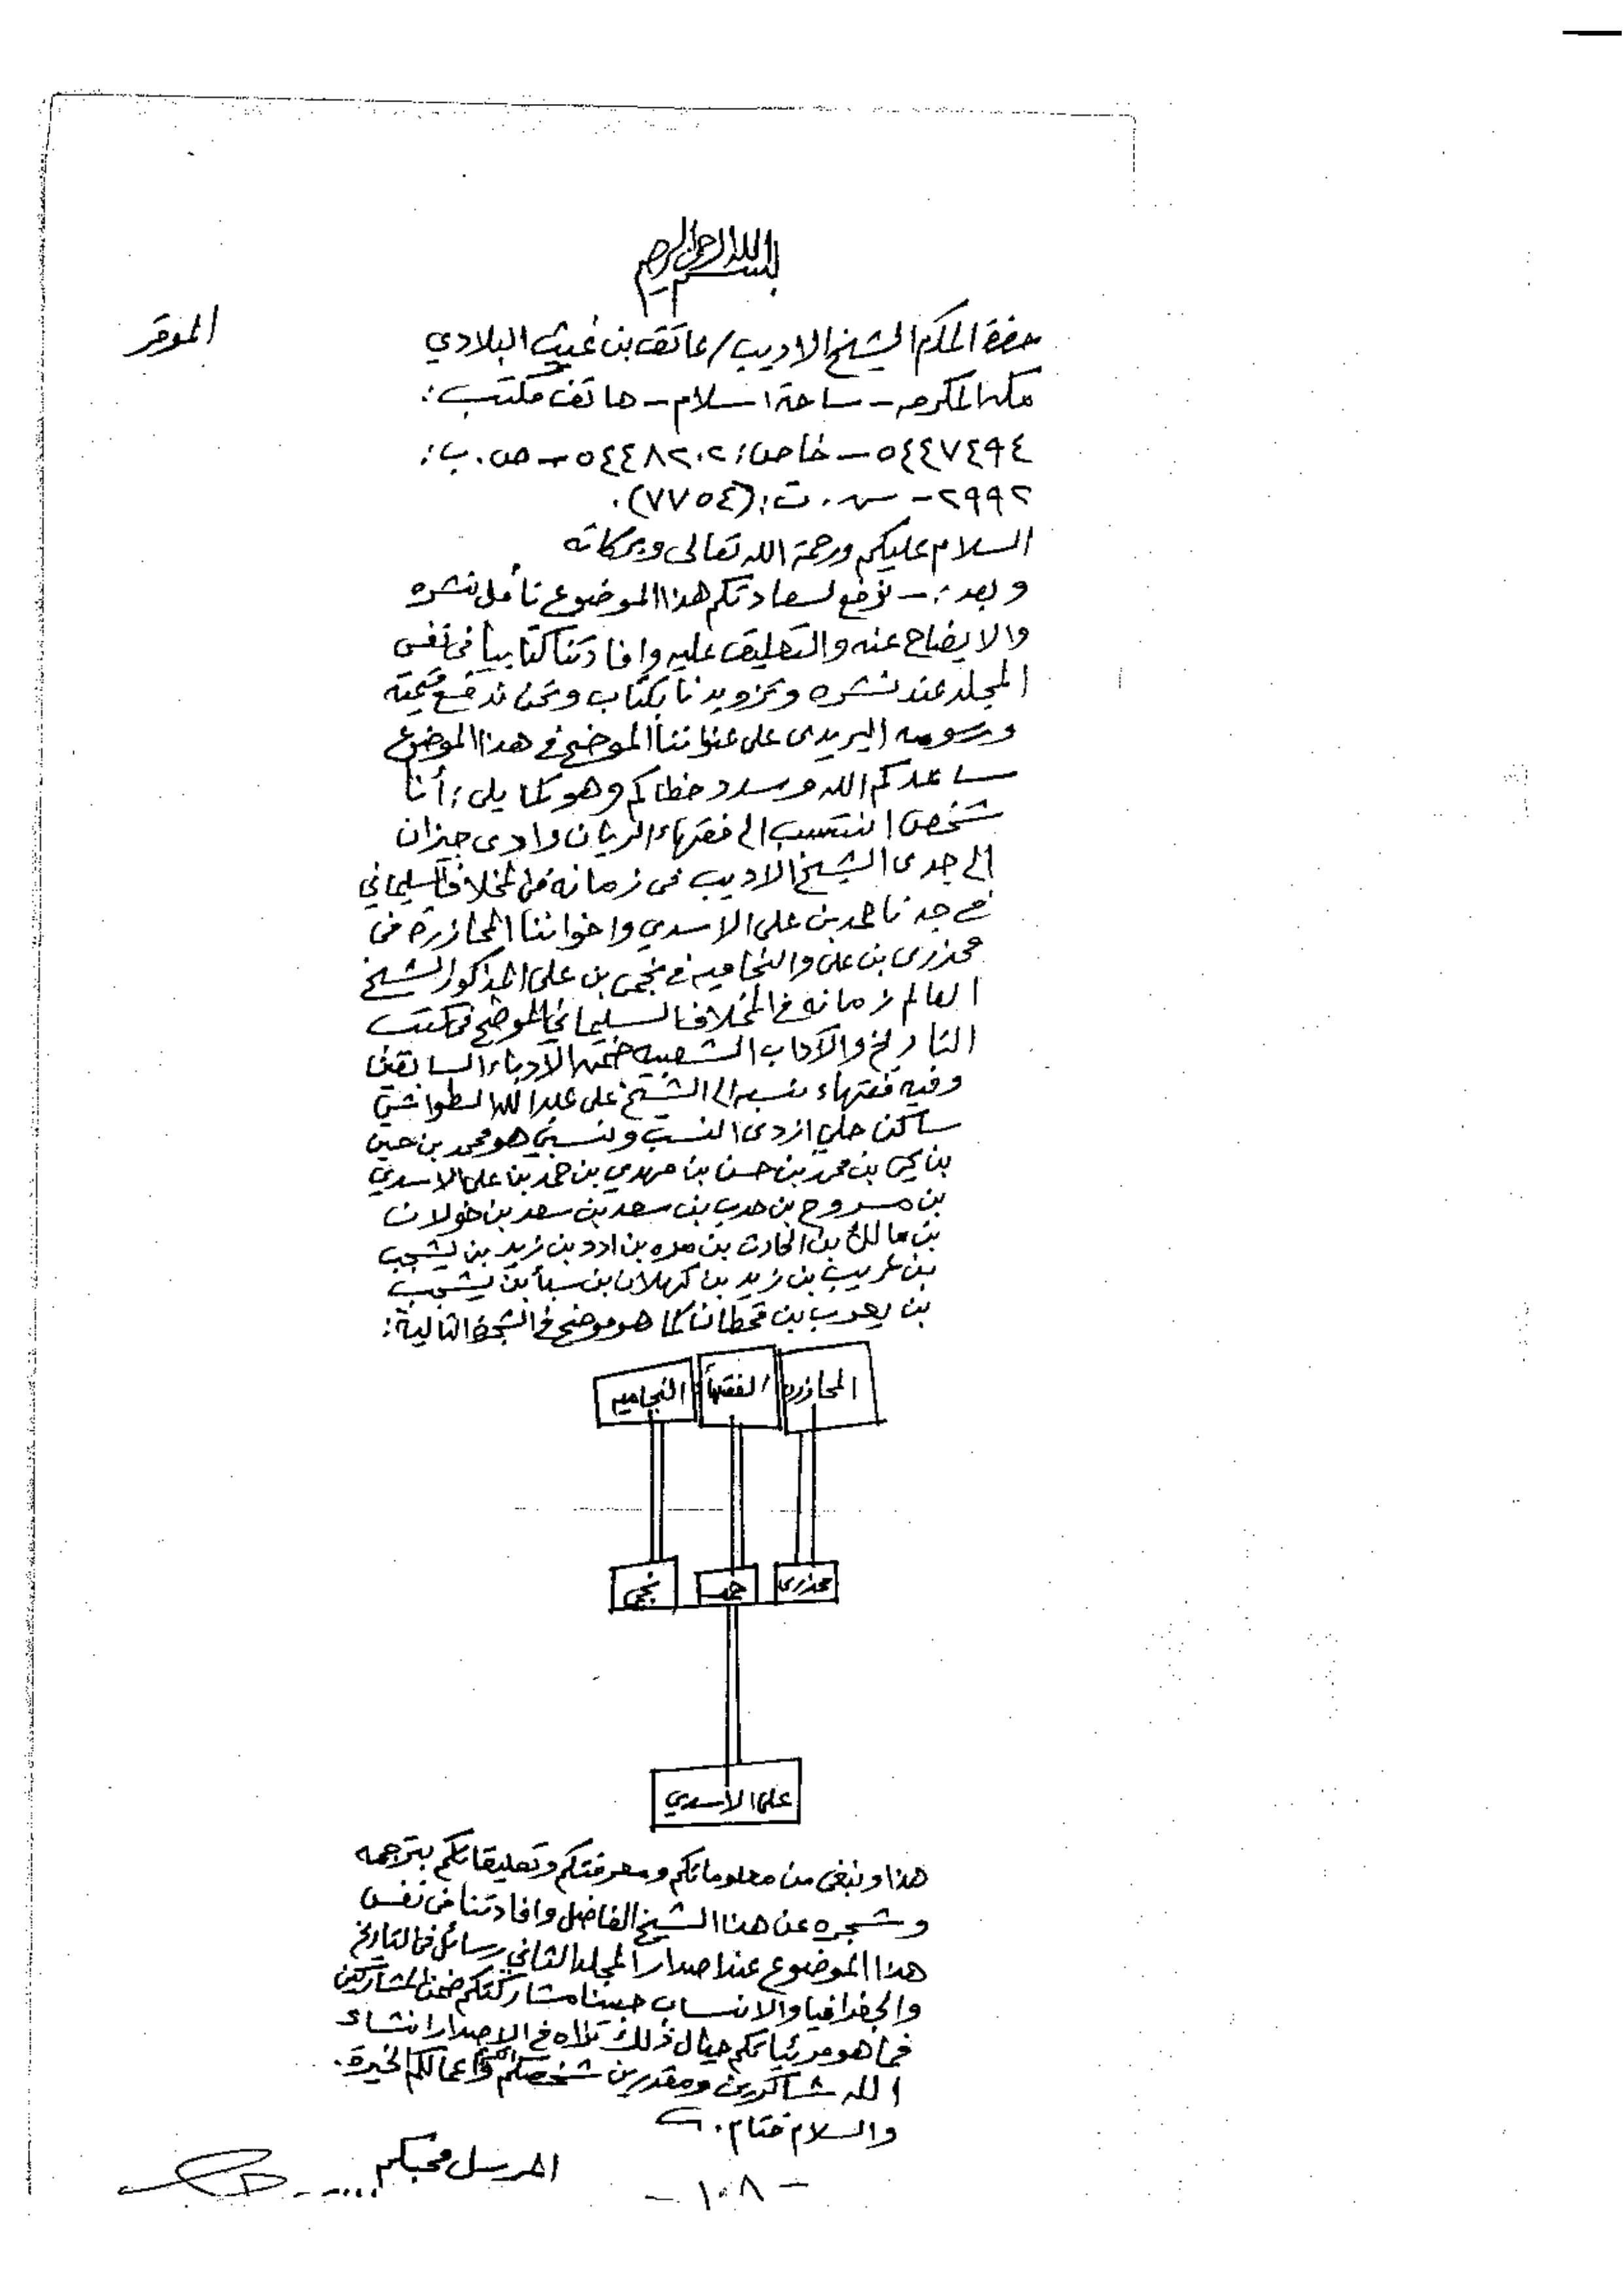 بسم الله الرحمن الرحيم
حضرة المكرم الشيخ الاديب/عاتق بن غيث البلادي الموقر
مكه المكرمه - ساحة اسلام - هاتف مكتب:
٥٤٤٧٤٩٤ - خاص: ٥٤٤٨٢٠٢ - ص.ب:
٢٩٩٢ - س.ت: (٧٧٥٤).
السلام عليكم ورحمة الله تعالى وبركاته
وبعد:- نرفع لسعادتكم هذا الموضوع نأمل نشره
والايضاح عنه والتعليق عليه وافادتنا كتابياً في نفس
المجلد عند نشره وتزويدنا بكتاب ونحن ندفع قيمته
ورسومه البريدى على عنواننا الموضح في هذا الموضوع
ساعدكم الله وسدد خطاكم وهو كما يلى: أنا
شخص انتسب الى فقهاء الريان وادى جيزان
الى جدى الشيخ الاديب فى زمانه في المخلاف السليماني
في جدنا حمد بن على الاسدي واخواننا المحازرة فى
محزرى بن على والنجاميه في نجمى بن على المذكور الشيخ
العالم زمانه في المخلاف السليماني الموضح فى كتب
التاريخ والآداب الشعبيه ضمن الادباء السابقين
وفيه فقهاء نسبه الى الشيخ على عبدالله الطواشي
ساكن حلي ازدى النسب ونسبي هو محمد بن حسين
بن يحي بن محمد بن حسن بن مهدي بن حمد بن على الاسدي
بن مسروح بن حرب بن سعد بن سعد بن خولان
بن مالك بن الحارث بن مره بن ادد بن زيد بن يشجب
بن عريب بن زيد بن كهلان بن سبأ بن يشجب
بن يعرب بن قحطان كما هو موضح في الشجرة التالية:
المحازره الفقهاء النجاميه
محزرى حمد نجمى
على الاسدي
هذا ونبغى من معلوماتكم ومعرفتكم وتعليقاتكم بترجمه
وشجره عن هذا الشيخ الفاضل وافادتنا فى نفس
هذا الموضوع عند اصدار المجلد الثاني رسائل في التاريخ
والجغرافيا والانساب حبينا مشاركتكم ضمن المشاركين
فما هو مرئياتكم حيال ذلك نراه في الاصدار انشاء
الله شاكرين ومقدرين شخصكم واعمالكم الخيرة.
والسلام ختام.
المرسل محبكم.....
- ١٠٨ -